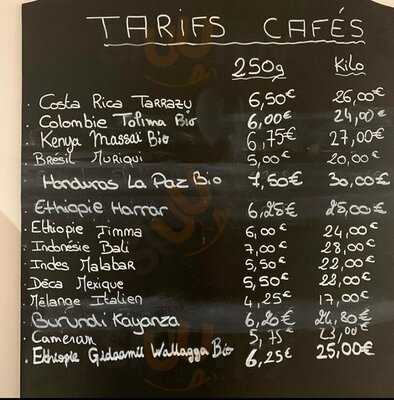 TARIFS CAFÉS
250g Kilo
. Costa Rica TARRAZU 6,50€ 26,00€
. Colombie Tolima Bio 6,00€ 24,00€
. Kenya Massai Bio 6,75€ 27,00€
. Brésil Muriqui 5,00€ 20,00€
. Honduras La Paz Bio 7,50€ 30,00€
. Ethiopie Harrar 6,25€ 25,00€
. Ethiopie Jimma 6,00€ 24,00€
. Indonésie Bali 7,00€ 28,00€
. Indes Malabar 5,50€ 22,00€
. Déca Mexique 5,50€ 22,00€
. Mélange Italien 4,25€ 17,00€
. Burundi Kayanza 6,20€ 24,80€
. Cameroun 5,75€ 23,00€
. Ethiopie Gidaamil Wallagga Bio 6,25€ 25,00€